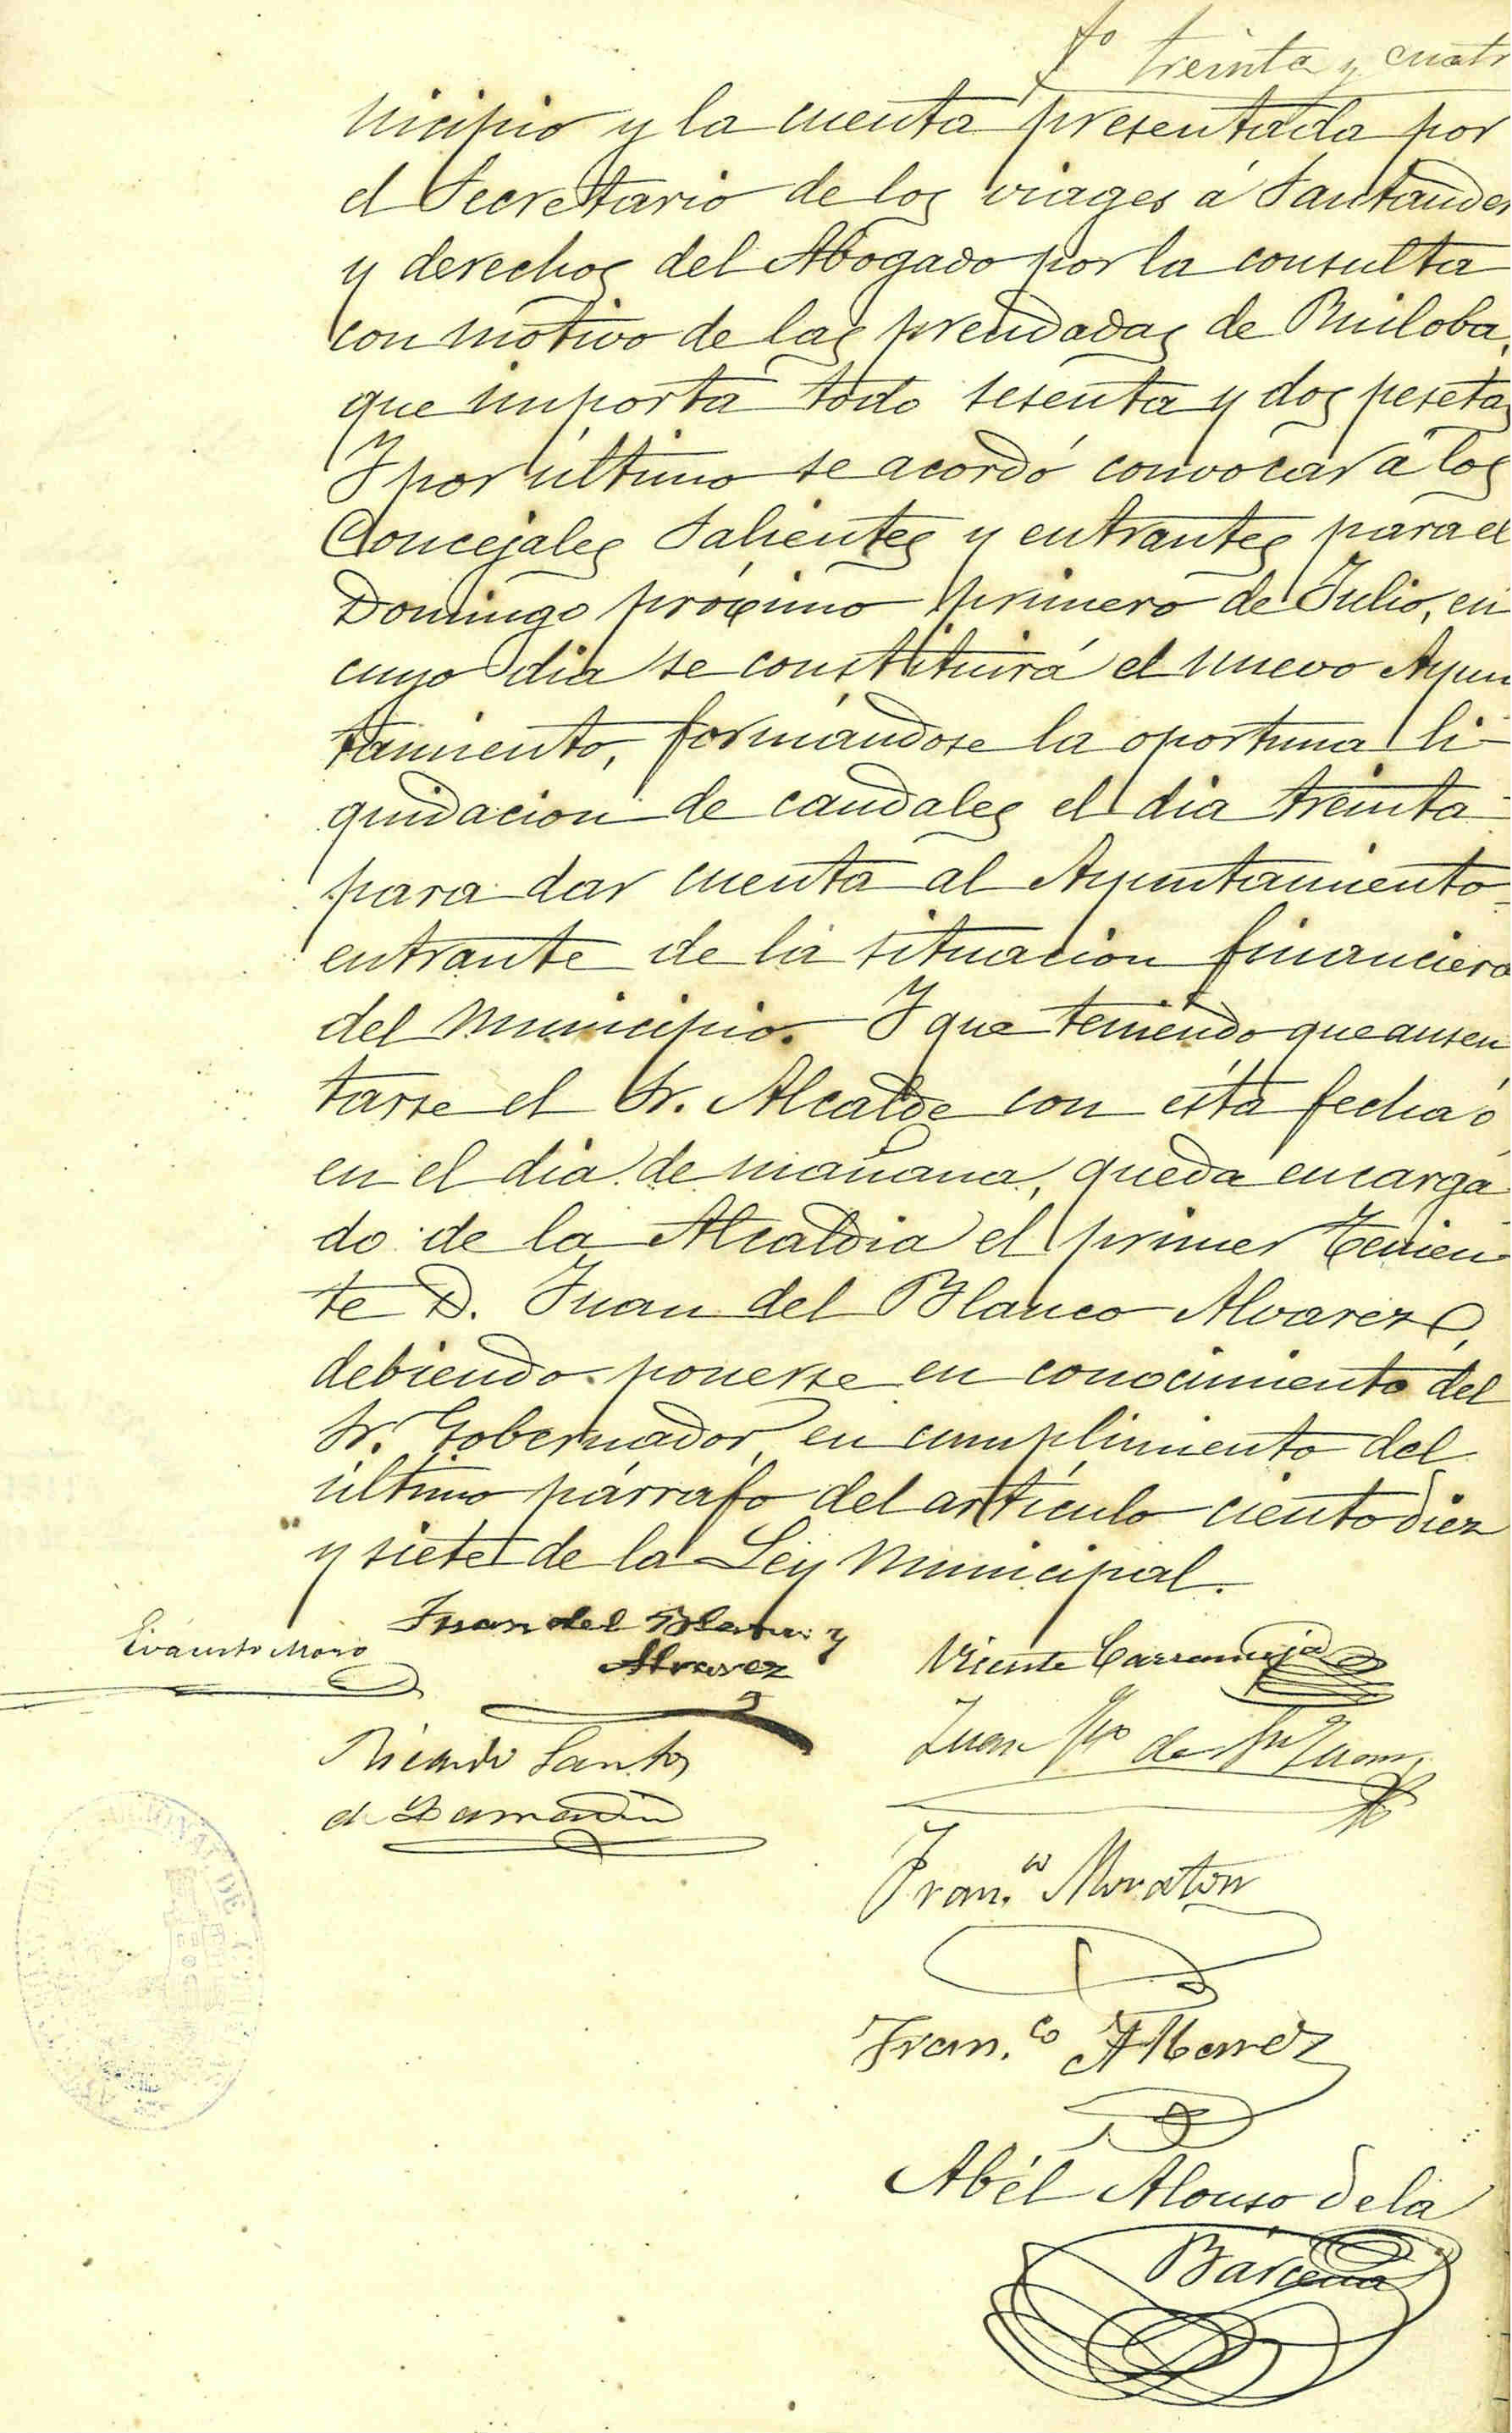 fº treinta y cuatr
nicipio y la cuenta presentada por
el Secretario de los viages á Santander
y derechos del Abogado por la consulta
con motivo de las prendadas de Ruiloba,
que importa todo sesenta y dos pesetas
Y por último se acordó convocar á los
Concejales Salientes y entrantes para el
Domingo próximo primero de Julio, en
cuyo dia se constituirá el nuevo Ayun
tamiento, formándose la oportuna li-
quidacion de caudales el dia treinta
para dar cuenta al Ayuntamiento
entrante de la situacion financiera
del Municipio. Y que teniendo que ausen
tarse el Sr. Alcalde con ésta fecha ó
en el dia de mañana, queda encarga
do de la Alcaldia el primer Tenien
te D. Juan del Blanco Alvarez,
debiendo ponerse en conocimiento del
Sr. Gobernador, en cumplimiento del
último párrafo del artículo ciento diez
y siete de la Ley Municipal.
Evaristo Moro
Juan del Blanco y
Alvarez
Vicente
Ricardo Santos
de
Juan de
Fran.co Moraton
Fran.co Alvarez
Abél Alonso de la
Bárcena
NACIONAL DE